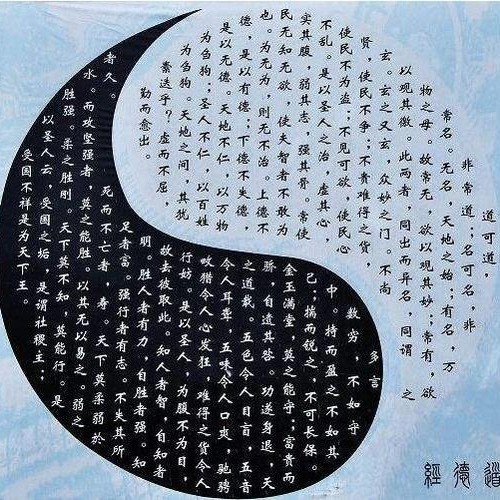 道可道，
非常道；名可名，非
常名。无名，天地之始；有名，万
物之母。故常无，欲以观其妙；常有，欲
以观其徼。此两者，同出而异名，同谓之
玄。玄之又玄，众妙之门。不尚
贤，使民不争；不贵难得之货，
使民不为盗；不见可欲，使民心
不乱。是以圣人之治，虚其心，
实其腹，弱其志，强其骨。常使
民无知无欲，使夫智者不敢为
也。为无为，则无不治。上德不
德，是以有德；下德不失德，
是以无德。天地不仁，以万物
为刍狗；圣人不仁，以百姓
为刍狗。天地之间，其犹
橐迭乎？虚而不屈，
勤而愈出。
多言
数穷，不如守
中。持而盈之不如其
己；揣而锐之，不可长保。
金玉满堂，莫之能守；富贵而
骄，自遗其咎。功遂身退，天
之道哉。五色令人目盲，五音
令人耳聋，五味令人口爽，驰骋
畋猎令人心发狂，难得之货令人
行妨。是以圣人，为腹不为目，
故去彼取此。知人者智，自知者
明。胜人者有力，自胜者强。知
足者富。强行者有志。不失其所
者久。死而不亡者，寿。天下莫柔弱於
水。而攻坚强者，莫之能胜。以其无以易之。弱之
胜强。柔之胜刚。天下莫不知，莫能行。是
以圣人云，受国之垢，是谓社稷主，
受国不祥是为天下王。
道德經